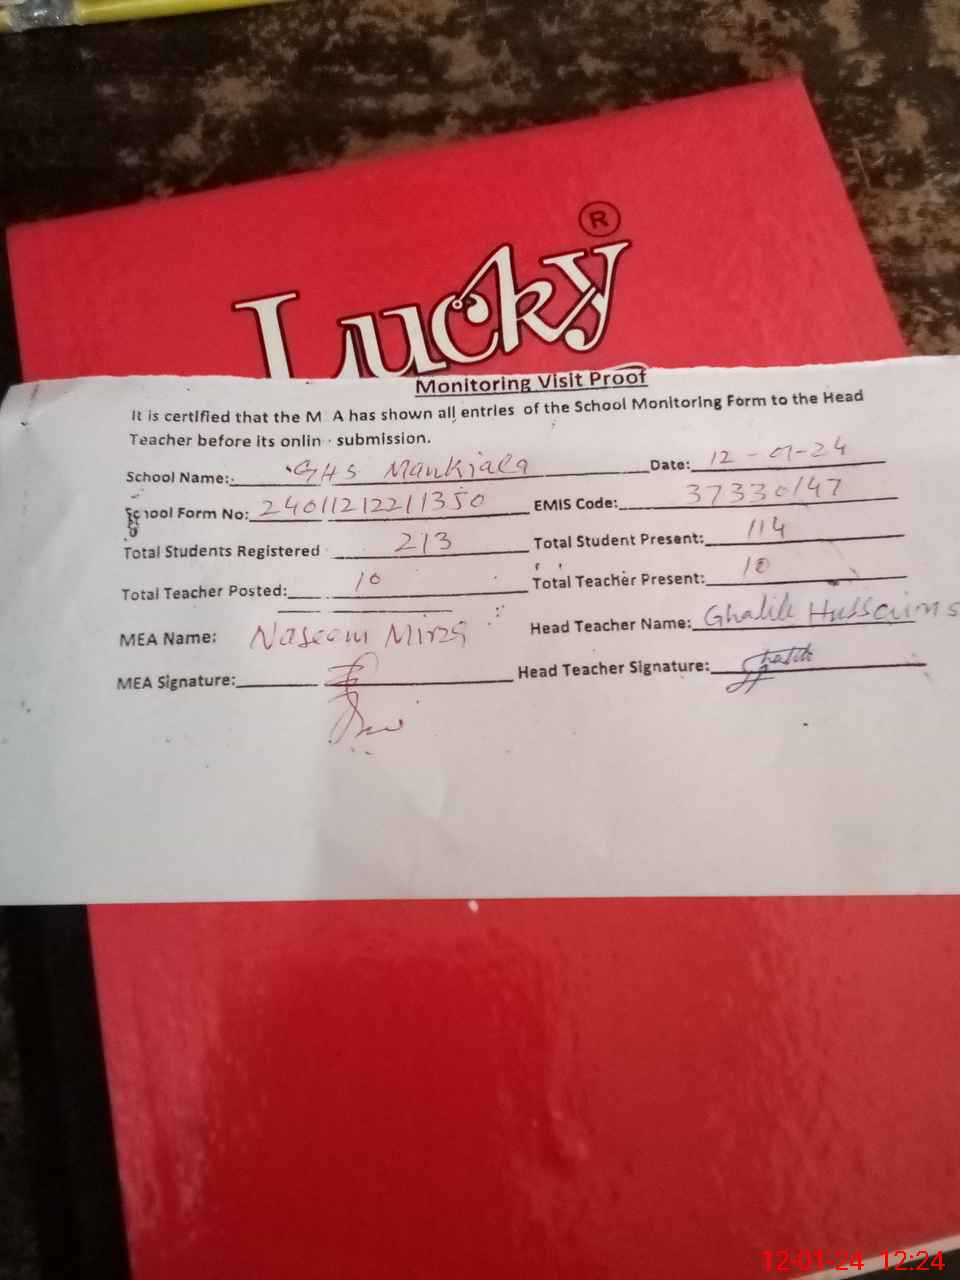 Lucky ®
Monitoring Visit Proof
It is certified that the M A has shown all entries of the School Monitoring Form to the Head
Teacher before its onlin submission.
School Name: GHS Mankiala Date: 12-01-24
School Form No: 24011212211350 EMIS Code: 37330147
Total Students Registered 213 Total Student Present: 114
Total Teacher Posted: 10 Total Teacher Present: 10
MEA Name: Naseem Mirza Head Teacher Name: Hussain
MEA Signature: Head Teacher Signature:
12-01-24 12:24